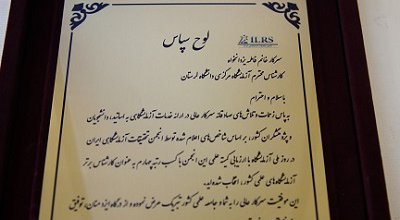 لوح سپاس
ILRS
سرکار خانم فاطمه یزدانخواه
کارشناس محترم آزمایشگاه مرکزی دانشگاه لرستان
با سلام و احترام
به پاس زحمات و تلاش‌های صادقانه سرکار عالی در ارائه خدمات آزمایشگاهی به اساتید، دانشجویان
و پژوهشگران کشور، بر اساس شاخص‌های اعلام شده توسط انجمن تحقیقات آزمایشگاهی ایران
در روز ملی آزمایشگاه با ارزیابی کمیته علمی این انجمن با کسب رتبه چهارم به عنوان کارشناس برتر
آزمایشگاه‌های علمی کشور، انتخاب شده‌اید.
این موفقیت سرکار عالی را به شما و جامعه علمی کشور تبریک عرض نموده و از درگاه ایزد منان، توفیق